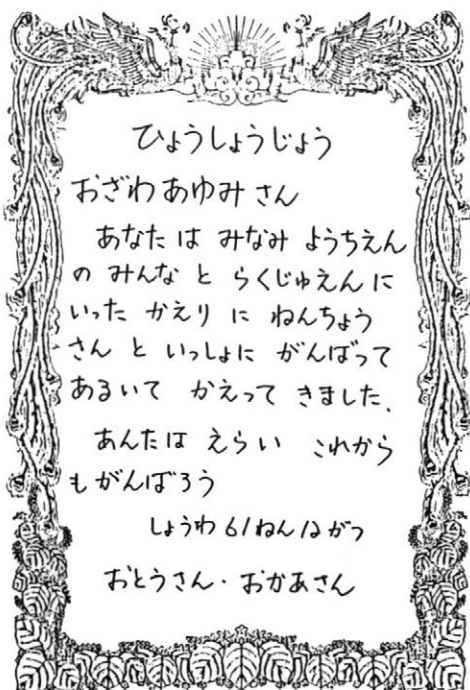 ひょうしょうじょう
おざわあゆみ さん
あなた は みなみ ようちえん
の みんな と らくじゅえん に
いった かえり に ねんちょう
さん と いっしょに がんばって
あるいて かえって きました、
あんたは えらい これから
も がんばろう
しょうわ 61ねん12がつ
おとうさん・おかあさん